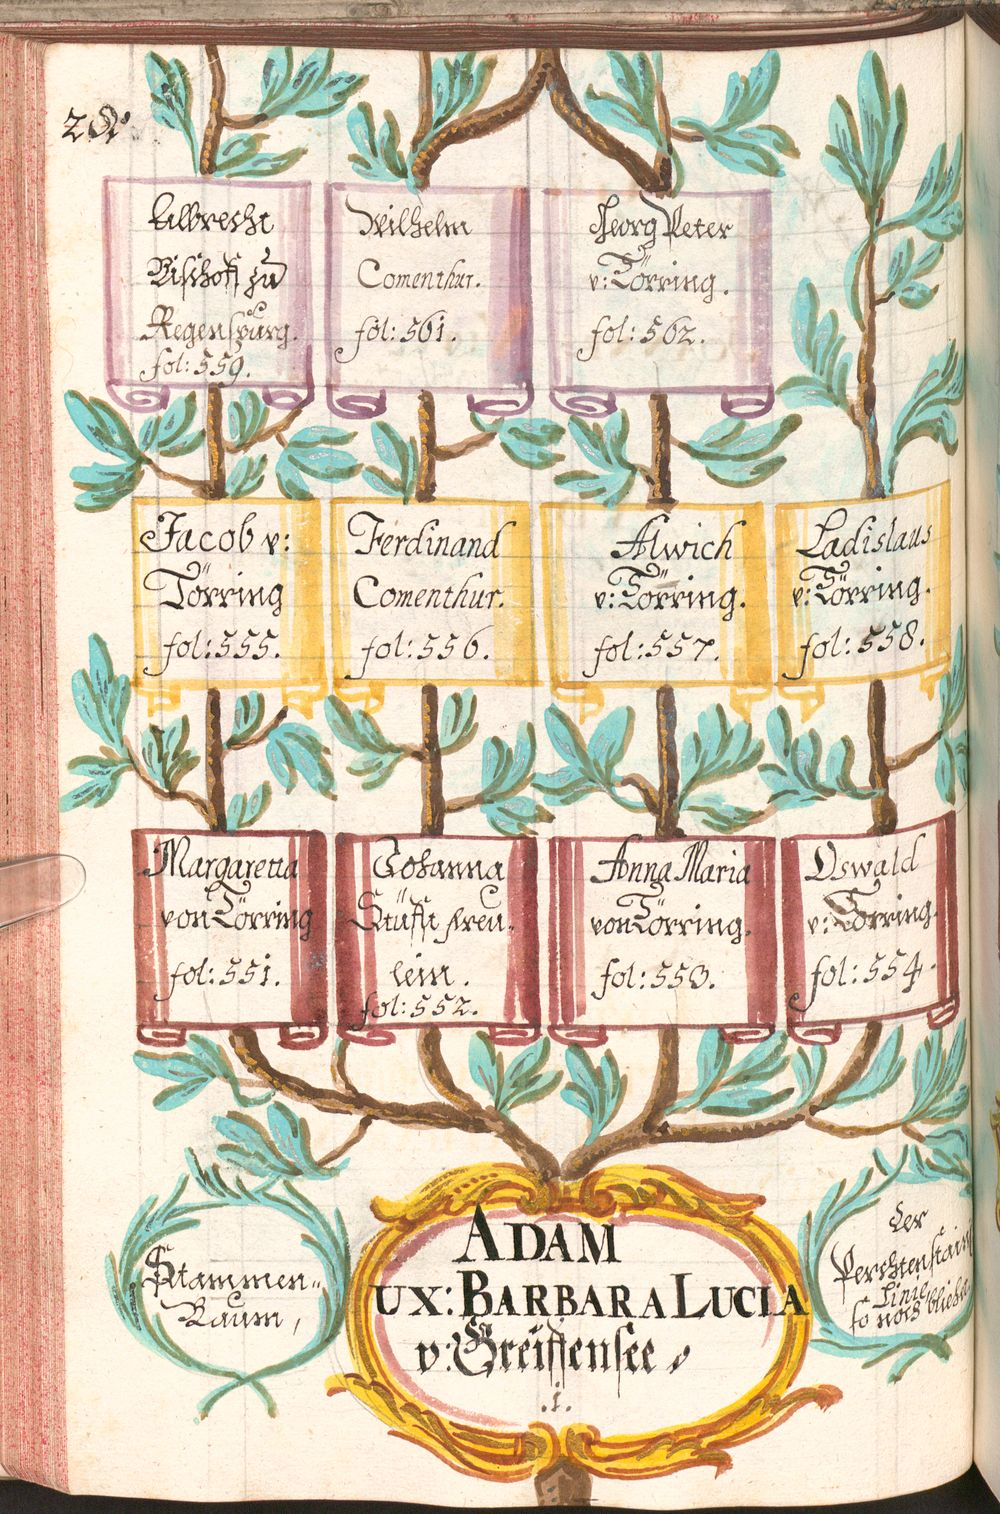 Albrecht
Bischoff zu
Regenspurg.
fol: 559.
Wilhelm
Comenthur.
fol: 561.
Georg Peter
v: Törring.
fol: 562.
Jacob v:
Törring
fol: 555.
Ferdinand
Comenthur.
fol: 556.
Alwich
v: Törring.
fol: 557.
Ladislaus
v: Törring.
fol: 558.
Margaretta
von Törring
fol: 551.
Johanna
Stüfft freu-
lein.
fol: 552.
Anna Maria
von Törring.
fol: 553.
Oswald
v: Törring.
fol: 554.
Stammen-
Baum,
ADAM
UX: BARBARA LUCIA
v: Greiffensee,
.1.
der
Perchtenstain
Linie
so noch bliehet